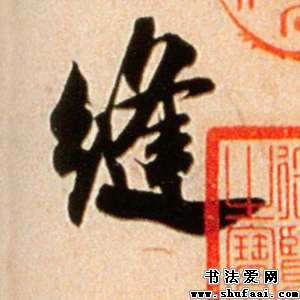 縫
书法爱网
www.shufaai.com